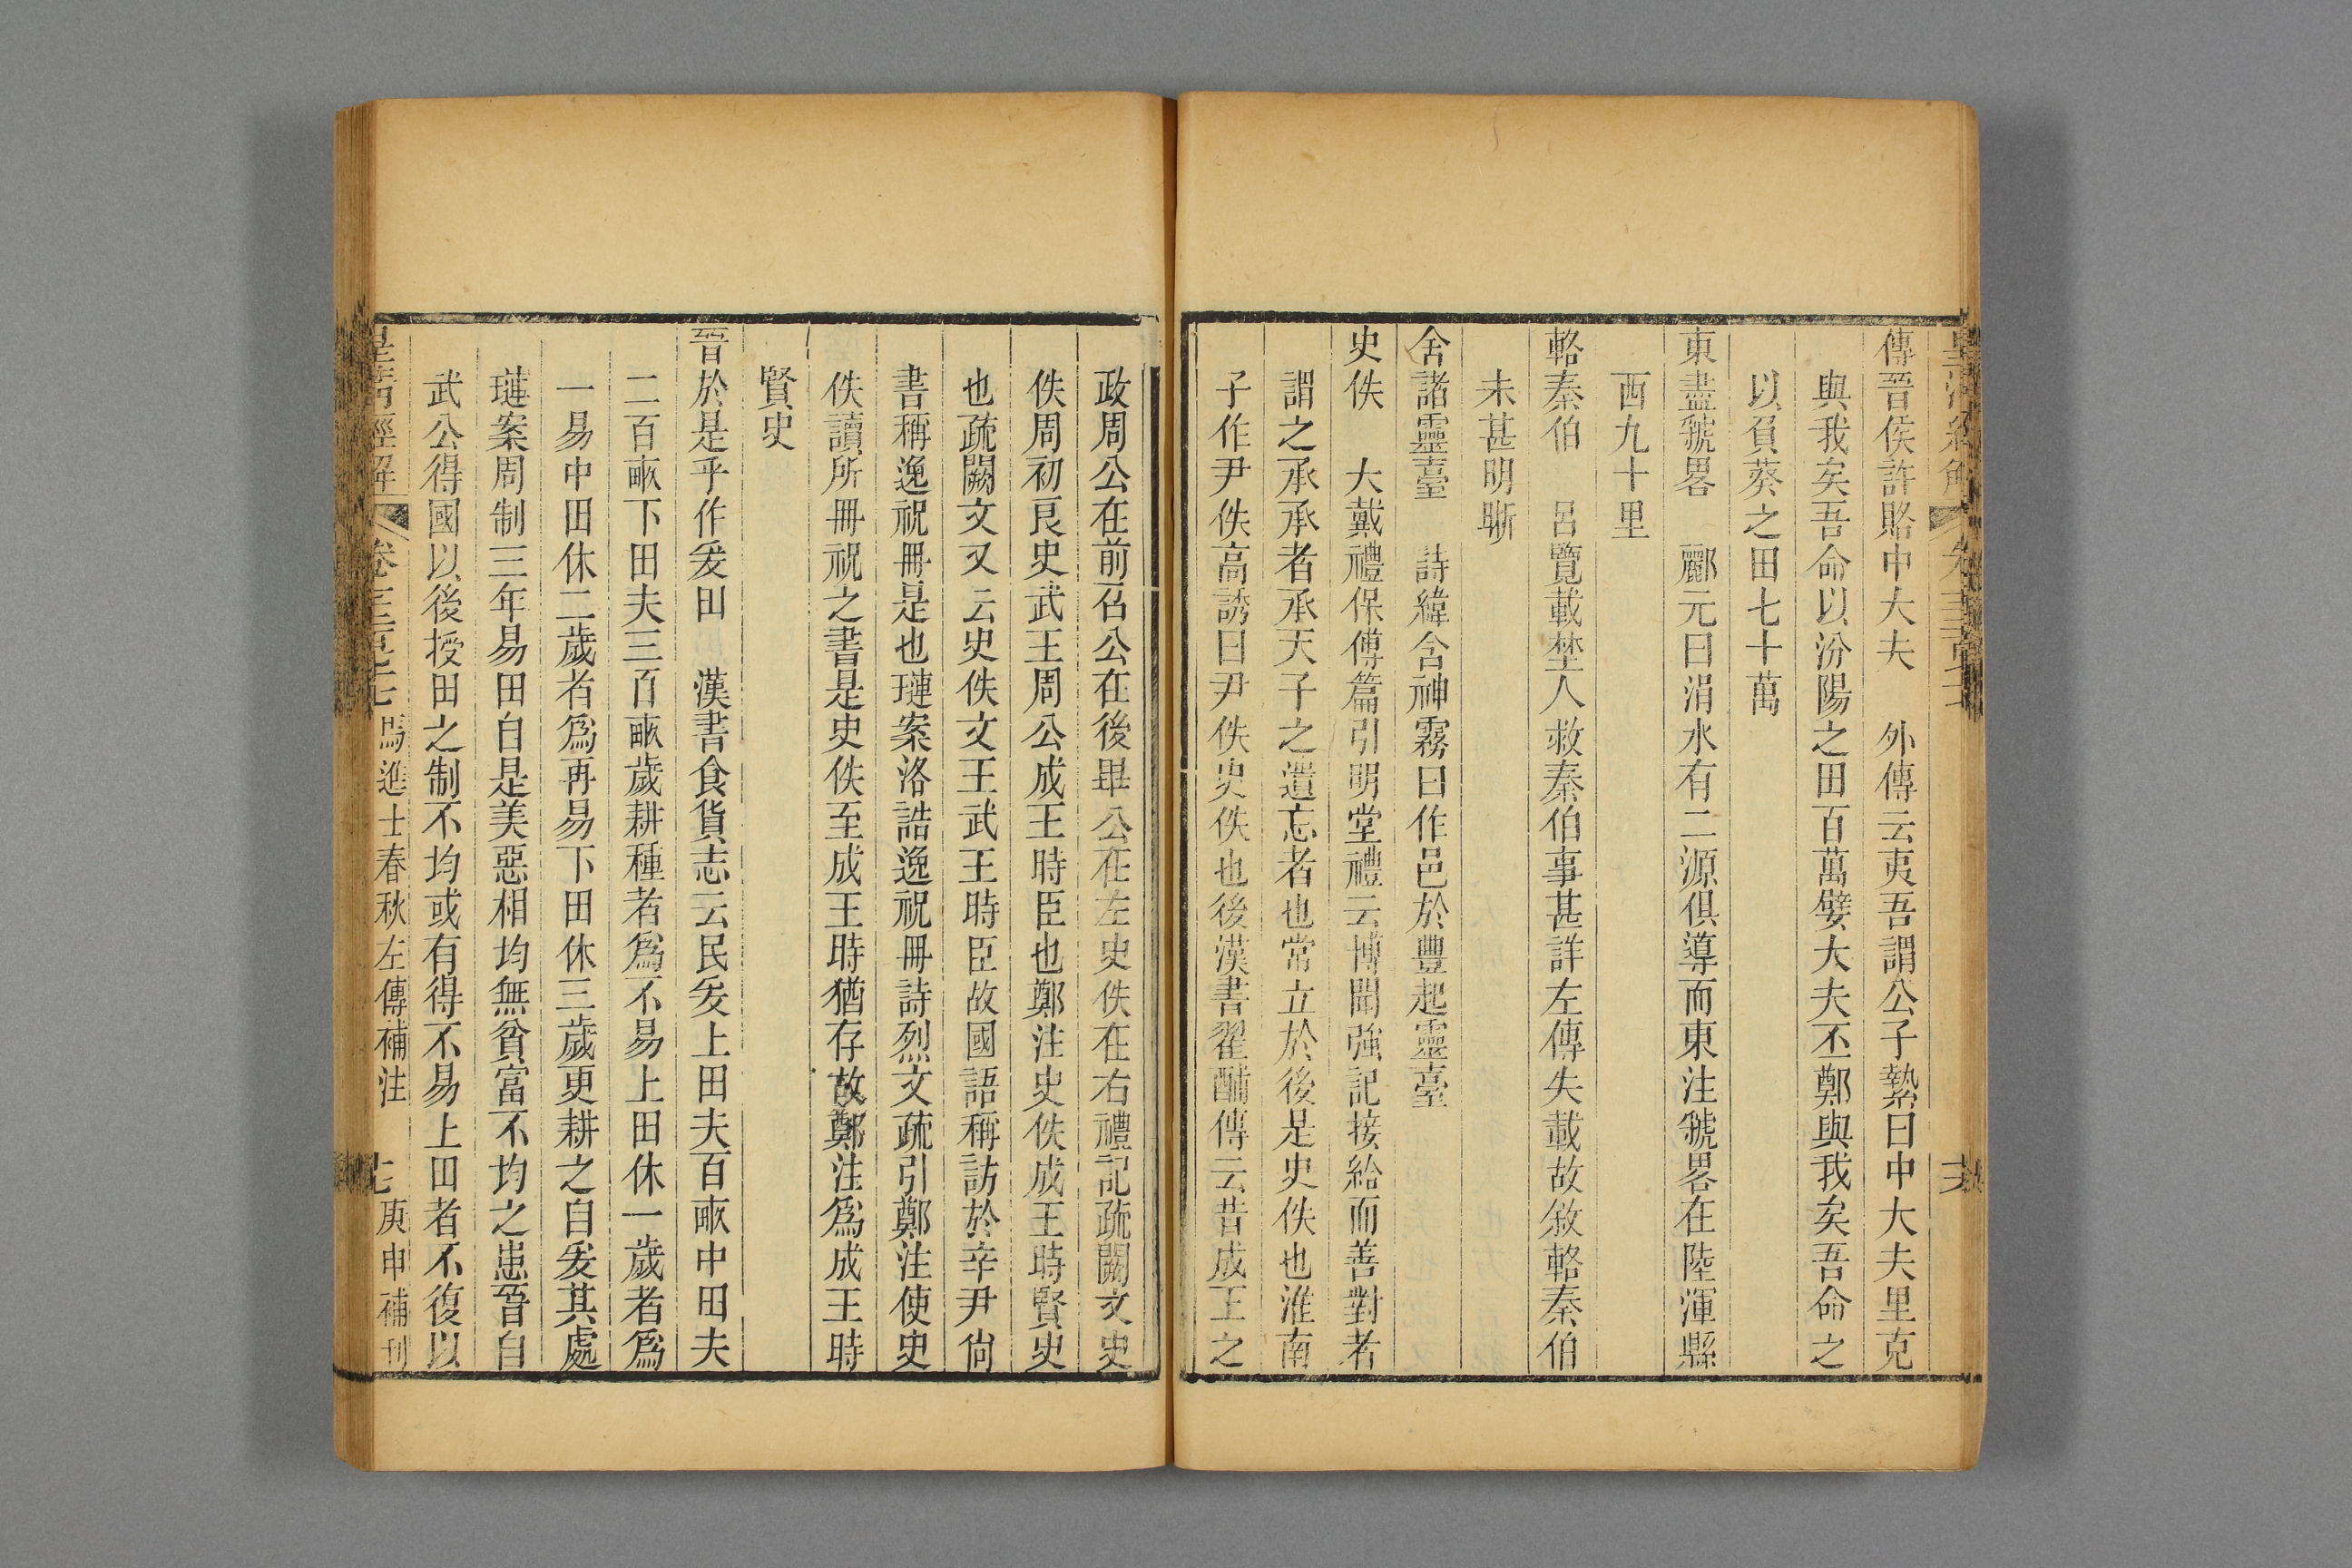 傳晉侯許賂中大夫　外傳云夷吾謂公子縶曰中大夫里克
與我矣吾命以汾陽之田百萬嬖大夫丕鄭與我矣吾命之
以負葵之田七十萬
東盡虢畧　酈元曰涓水有二源俱導而東注虢畧在陸渾縣
西九十里
輅秦伯　呂覽載埜人救秦伯事甚詳左傳失載故敘輅秦伯
未甚明晰
舍諸靈臺　詩緯含神霧曰作邑於豐起靈臺
史佚　大戴禮保傅篇引明堂禮云博聞強記接給而善對者
謂之承承者承天子之遺忘者也常立於後是史佚也淮南
子作尹佚高誘曰尹佚史佚也後漢書翟酺傳云昔成王之
政周公在前召公在後畢公在左史佚在右禮記疏闕文史
佚周初良史武王周公成王時臣也鄭注史佚成王時賢史
也疏闕文又云史佚文王武王時臣故國語稱訪於辛尹尙
書稱逸祝冊是也璉案洛誥逸祝冊詩烈文疏引鄭注使史
佚讀所冊祝之書是史佚至成王時猶存故鄭注爲成王時
賢史
晉於是乎作爰田　漢書食貨志云民爰上田夫百畞中田夫
二百畞下田夫三百畞歲耕種者爲不易上田休一歲者爲
一易中田休二歲者爲再易下田休三歲更耕之自爰其處
璉案周制三年易田自是美惡相均無貧富不均之患晉自
武公得國以後授田之制不均或有得不易上田者不復以
皇清經解　卷　馬進士春秋左傳補注　七　庚申補刊